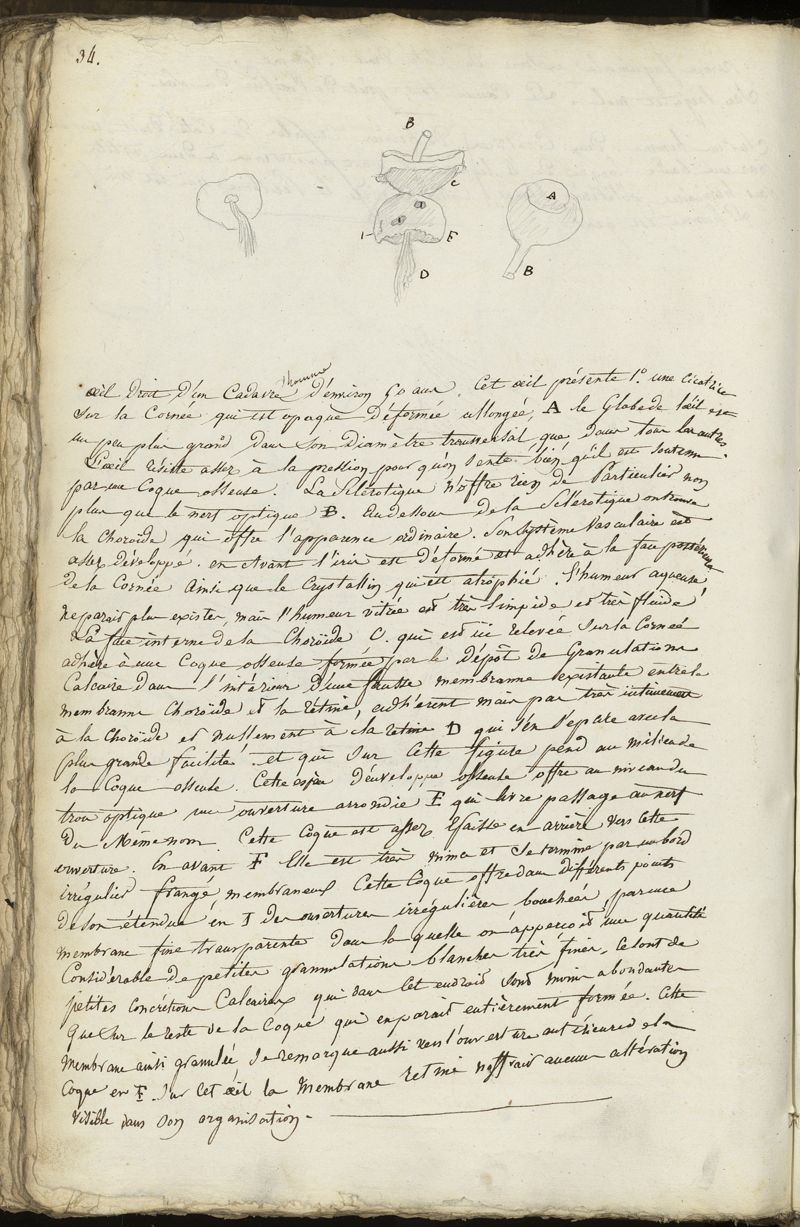 34.
B
C
A
I
E
D
B
d'homme
œil Droit D'un Cadavre D'environ 50 ans. Cet œil présente 1.° une Cicatrice
Sur la Cornée qui est opaque Déformée allongée, A le Globe de l'œil est
un peu plus grand dans Son Diamètre transversal que dans tous les autres.
L'œil résiste assez à la pression pour qu'on Sente bien qu'il est Soutenu
par une Coque osseuse. La Sclérotique n'offre rien de Particulier non
plus que le nerf optique B. Au dessous de la Sclérotique on trouve
la Choroïde qui offre l'apparence ordinaire. Son Système Vasculaire est
assez développé. en avant l'iris est Déformé et adhère à la face postérieure
de la Cornée Ainsi que le Crystallin qui est atrophié. l'humeur aqueuse
ne parait plus exister, mais l'humeur vitrée est très limpide et très fluide
La face interne de la Choroïde C. qui est ici relevée Sur la Cornée
adhère à une Coque osseuse formée par le Dépôt de Granulations
Calcaires dans l'intérieur D'une fausse membranne existante entre la
membranne Choroïde et la rétine, adhérent mais pas très intimement
à la Choroïde et nullement à la retine D qui S'en Sépare avec la
plus grande facilité et qui Sur Cette figure pend au milieu de
la Coque osseuse. Cette Déenveloppe osseuse offre au niveau du
trou optique une ouverture arrondie E qui livre passage au nerf
Du Même nom. Cette Coque est assez Epaisse en arrière vers Cette
ouverture. En avant F Elle est très mince et Se termine par un bord
irrégulier frangé, membraneux Cette Coque offre dans différents points
de Son étendue en I des ouvertures irrégulières bouchées, par une
membrane fine transparente dans la quelle on apperçoit une quantité
Considérable de petites grannulations blanches très fines, Ce Sont de
petites Concrétions Calcaires qui dans Cet endroit Sont moins abondantes
Que Sur le reste de la Coque qui en parait entièrement formée. Cette
membrane ainsi granulée, Se remarque aussi vers l'ouverture antérieure de la
Coque en F. Sur Cet œil la Membrane retine n'offrait aucune altération
Visible dans Son organisation.